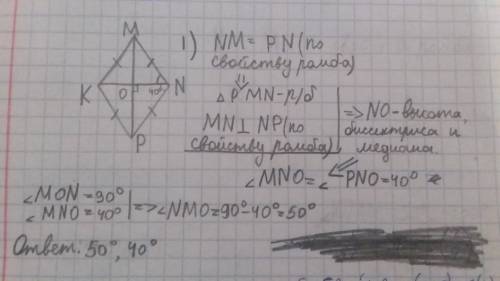 M
K
O
40°
N
P
1) NM = PN (по
свойству ромба)
⇓
△ PMN - р/б
MN ⊥ NP (по
свойству ромба)
=> NO - высота,
биссектриса и
медиана.
∠MNO = ∠PNO = 40°
∠MON = 90°
∠MNO = 40°
=> ∠NMO = 90° - 40° = 50°
Ответ: 50°, 40°